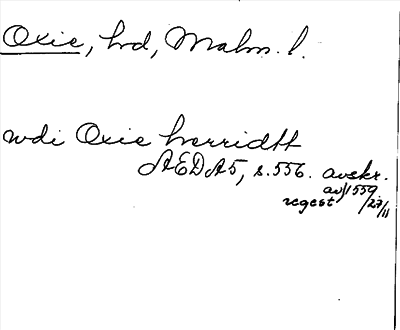 Oxie, hd, Malm. l.
wdi Oxie herridtt
ÆDA5, s. 556. avskr.
av 1559
regest /27/11